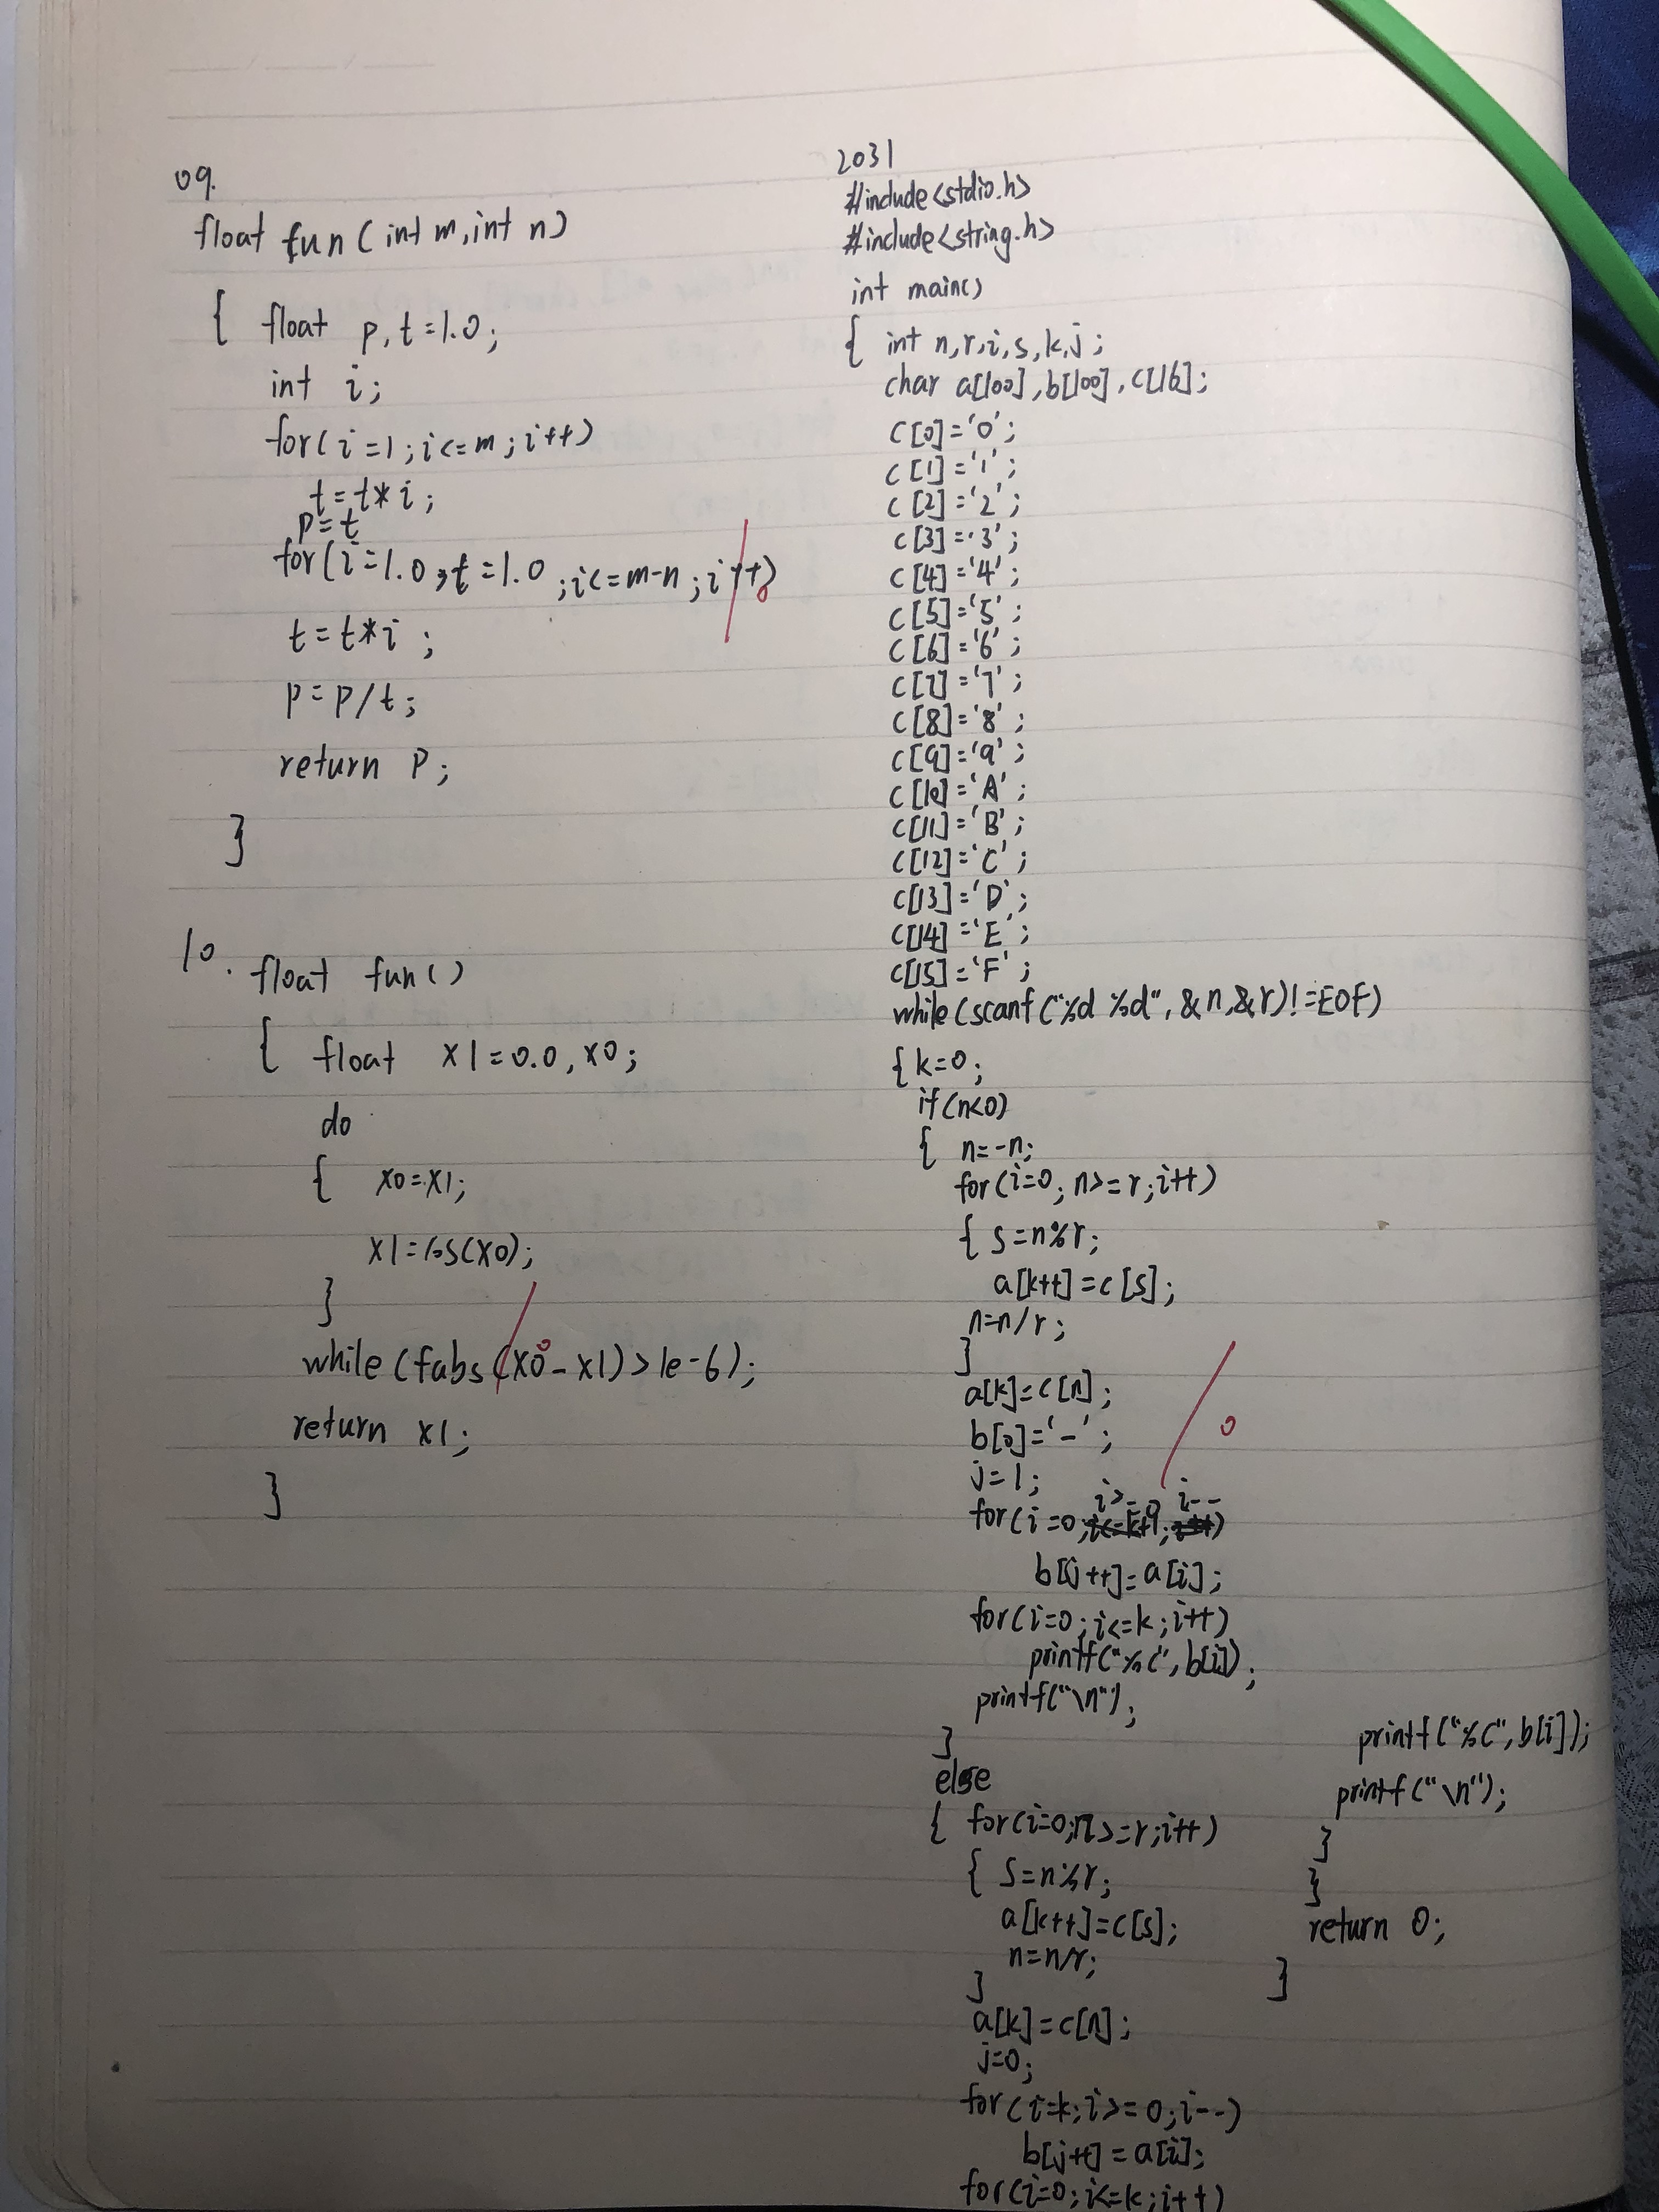 09.
float fun(int m,int n)
{ float p,t=1.0;
int i;
for(i=1;i<=m;i++)
t=t*i;
p=t
for(i=1.0,t=1.0;i<=m-n;i++)
t=t*i;
p=p/t;
return p;
}
10.
float fun()
{ float x1=0.0,x0;
do
{ x0=x1;
x1=cos(x0);
}
while(fabs(x0-x1)>1e-6);
return x1;
}
2031
#include<stdio.h>
#include<string.h>
int main()
{ int n,r,i,s,k,j;
char a[100],b[100],c[16];
c[0]='0';
c[1]='1';
c[2]='2';
c[3]='3';
c[4]='4';
c[5]='5';
c[6]='6';
c[7]='7';
c[8]='8';
c[9]='9';
c[10]='A';
c[11]='B';
c[12]='C';
c[13]='D';
c[14]='E';
c[15]='F';
while(scanf("%d %d",&n,&r)!=EOF)
{ k=0;
if(n<0)
{ n=-n;
for(i=0;n>=r;i++)
{ s=n%r;
a[k++]=c[s];
n=n/r;
}
a[k]=c[n];
b[0]='-';
j=1;
for(i=0;i>=0;i--)
b[j++]=a[i];
for(i=0;i<=k;i++)
printf("%c",b[i]);
printf("\n");
}
else
{ for(i=0;n>=r;i++)
{ s=n%r;
a[k++]=c[s];
n=n/r;
}
a[k]=c[n];
j=0;
for(i=k;i>=0;i--)
b[j++]=a[i];
for(i=0;i<=k;i++)
printf("%c",b[i]);
printf("\n");
}
}
return 0;
}